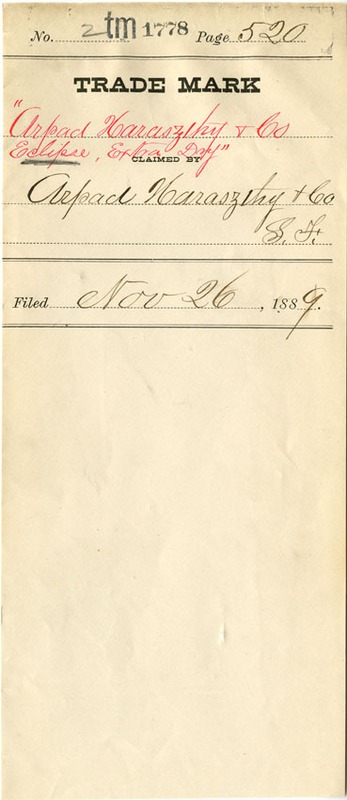 No. 2 tm 1778 Page 520
TRADE MARK
"Arpad Haraszthy & Co
Eclipse, Extra Dry"
CLAIMED BY
Arpad Haraszthy & Co
S. F.
Filed Nov 26, 1889.